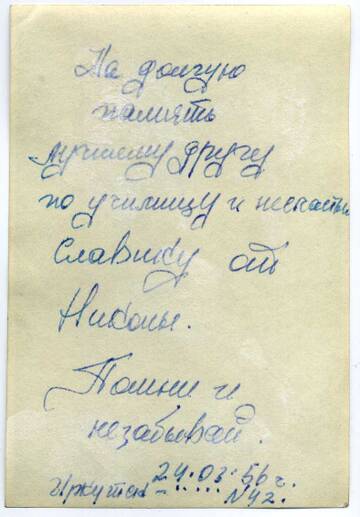 На долгую
память
лучшему другу
по училищу и
Славику от
Николы.
Помни и
незабывай.
Иркутск 24.03.56г.